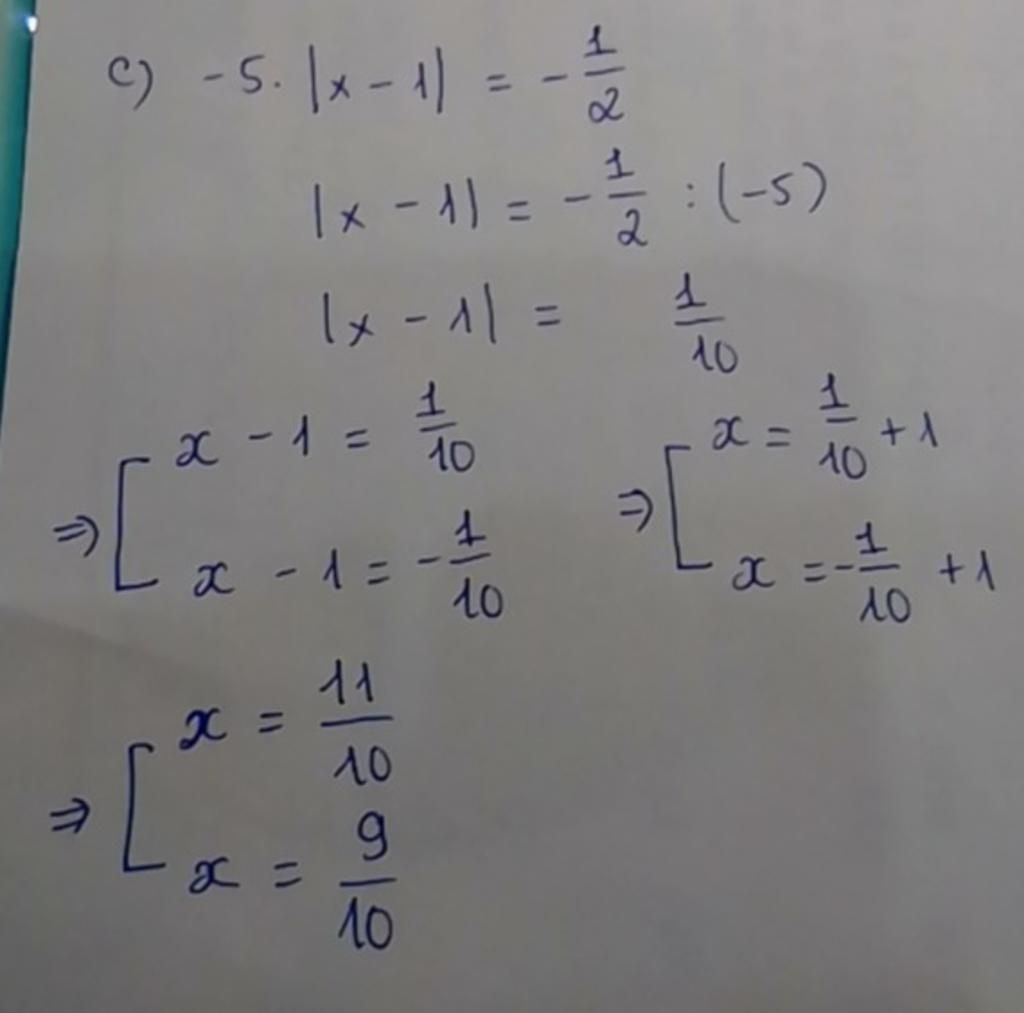 c) -5. |x - 1| = - 1/2
|x - 1| = - 1/2 : (-5)
|x - 1| = 1/10
⇒ [ x - 1 = 1/10
x - 1 = - 1/10
⇒ [ x = 1/10 + 1
x = - 1/10 + 1
⇒ [ x = 11/10
x = 9/10